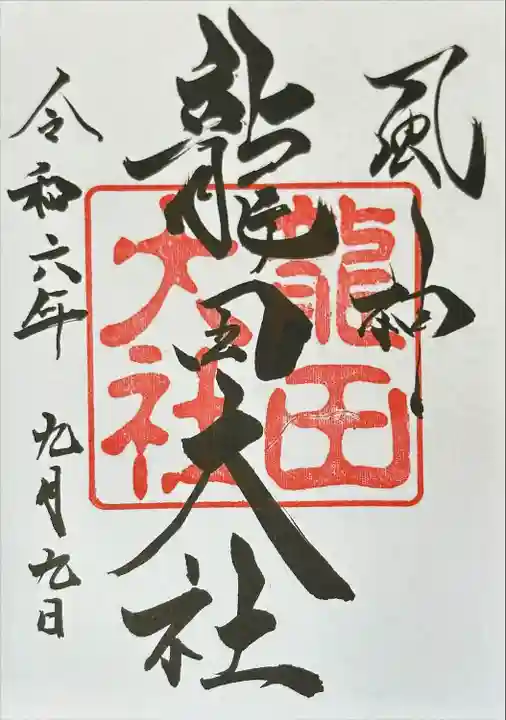 風神
龍田大社
龍田
大社
令和六年 九月九日